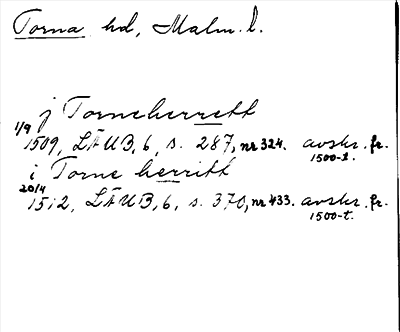 Torna hd, Malm. l.
j Torneherrett
1/9 1509, LÄUB, 6, s. 287, nr 324. avskr. fr. 1500-t.
i Torne herritt
20/4 1512, LÄUB, 6, s. 370, nr 433. avskr. fr. 1500-t.